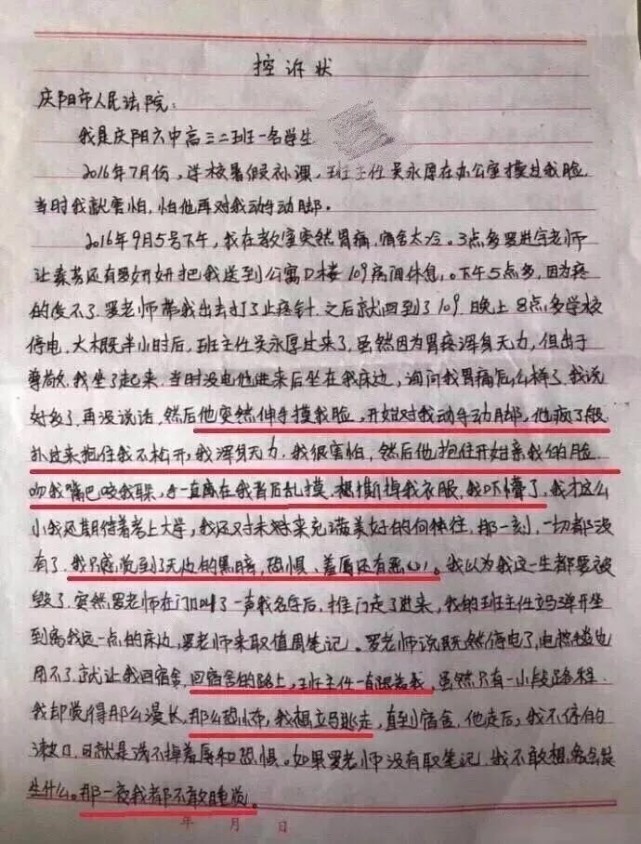 控诉状
庆阳市人民法院:
我是庆阳六中高三二班一名学生
2016年7月份,学校暑假补课,班主任吴永厚在办公室摸过我脸
当时我就害怕,怕他再对我动手动脚。
2016年9月5号下午,我在教室突然胃痛,宿舍太冷。3点多罗进宇老师
让秦芳还有罗妍妍把我送到公寓D楼109房间休息。下午5点多,因为疼
的受不了.罗老师带我出去打了止疼针.之后就回到了109.晚上8点多学校
停电.大概半小时后,班主任吴永厚过来了,虽然因为胃疼浑身无力,但出于
尊敬.我坐了起来.当时没电他进来后坐在我床边,询问我胃痛怎么样了.我说
好多了.再没说话.然后他突然伸手摸我脸,开始对我动手动脚,他疯了般
扑过来抱住我不松开,我浑身无力.我很害怕,然后他抱住开始亲我的脸
吻我嘴巴咬我耳朵,手一直在我背后乱摸.想撕掉我衣服.我吓懵了,我才这么
小我还期待着考上大学,我还对未来充满美好的向往.那一刻,一切都没
有了.我只感觉到了无边的黑暗,恐惧、羞辱还有恶心。我以为我这一生都要被
毁了.突然罗老师在门口叫了一声我名字后,推门走了进来,我的班主任立马弹开坐
到离我远一点的床边,罗老师来取值周笔记。罗老师说既然停电了,电热毯也
用不了.就让我回宿舍.回宿舍的路上,班主任一直跟着我,虽然只有一小段路程.
我却觉得那么漫长.那么恐怖,我想立马逃走,直到宿舍,他走后,我不停的
漱口.可就是洗不掉羞辱和恐惧。如果罗老师没有取笔记.我不敢想象会发
生什么。那一夜我都不敢睡觉。
年 月 日